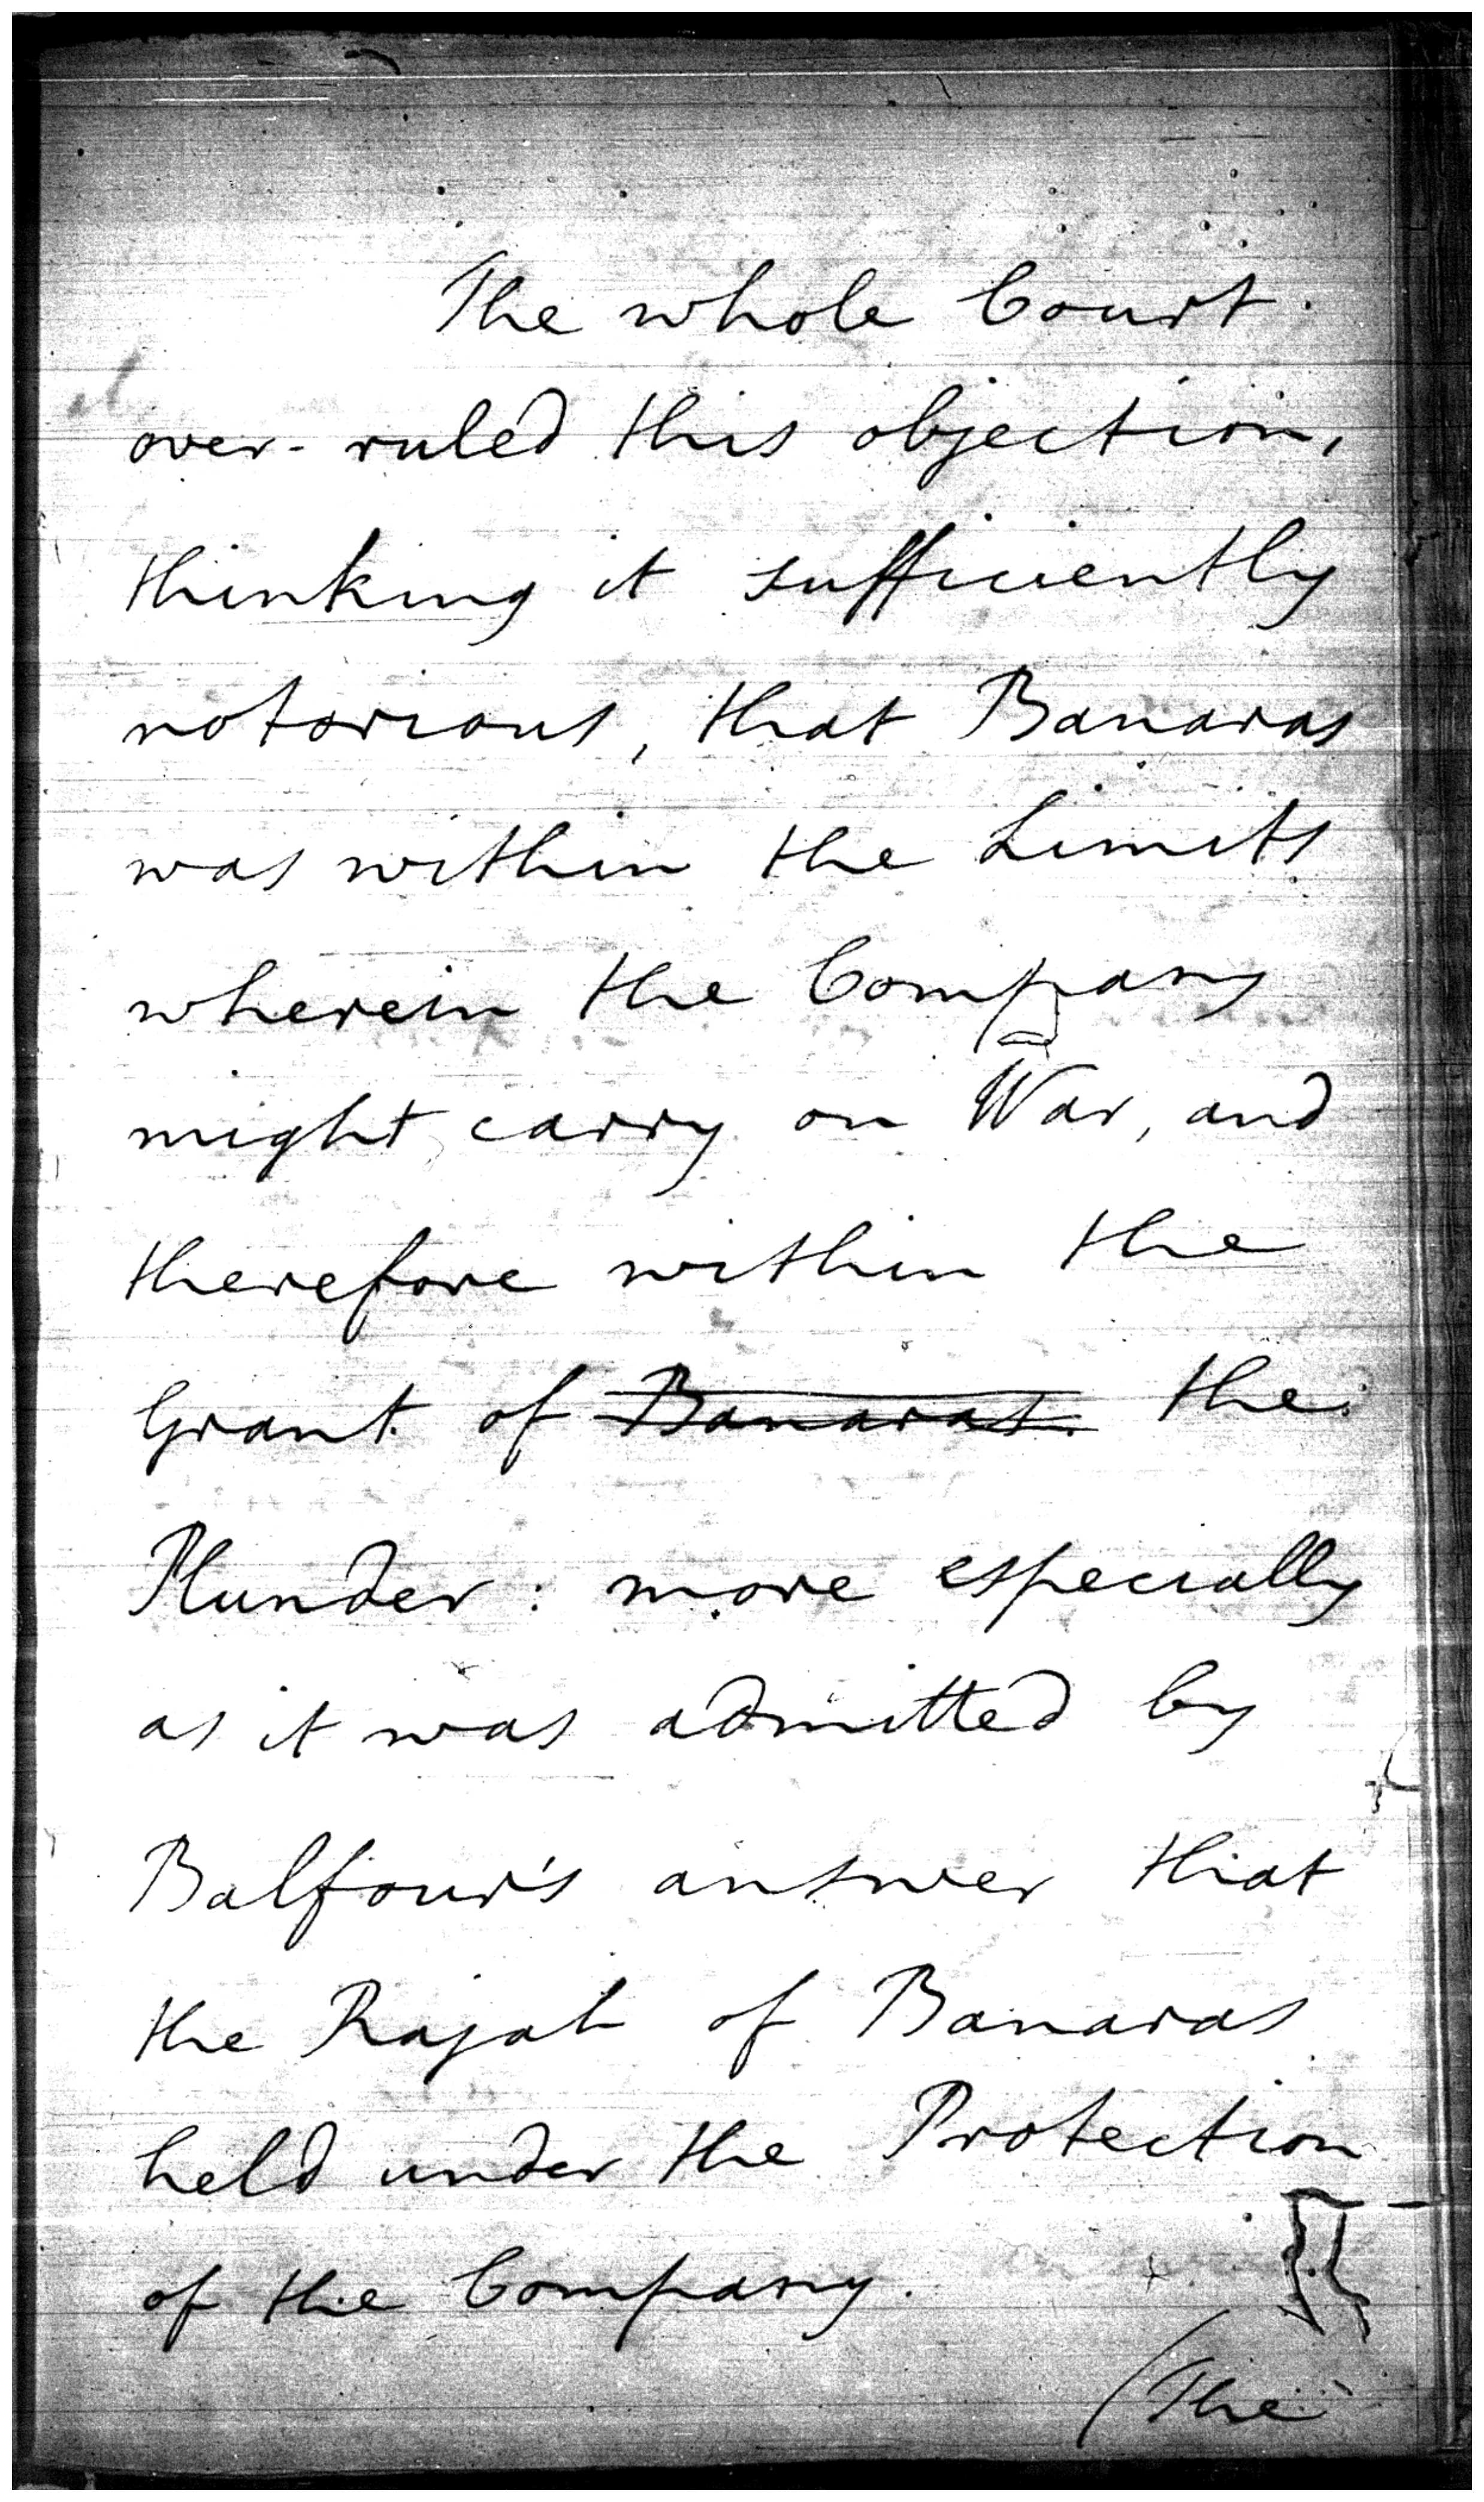 The whole Court
over-ruled this objection,
thinking it sufficiently
notorious, that Banaras
was within the Limits
wherein the Company
might carry on War, and
therefore within the
Grant of ~~Banaras~~ the
Plunder: more especially
as it was admitted by
Balfour's answer that
the Rajah of Banaras
held under the Protection
of the Company.
(The